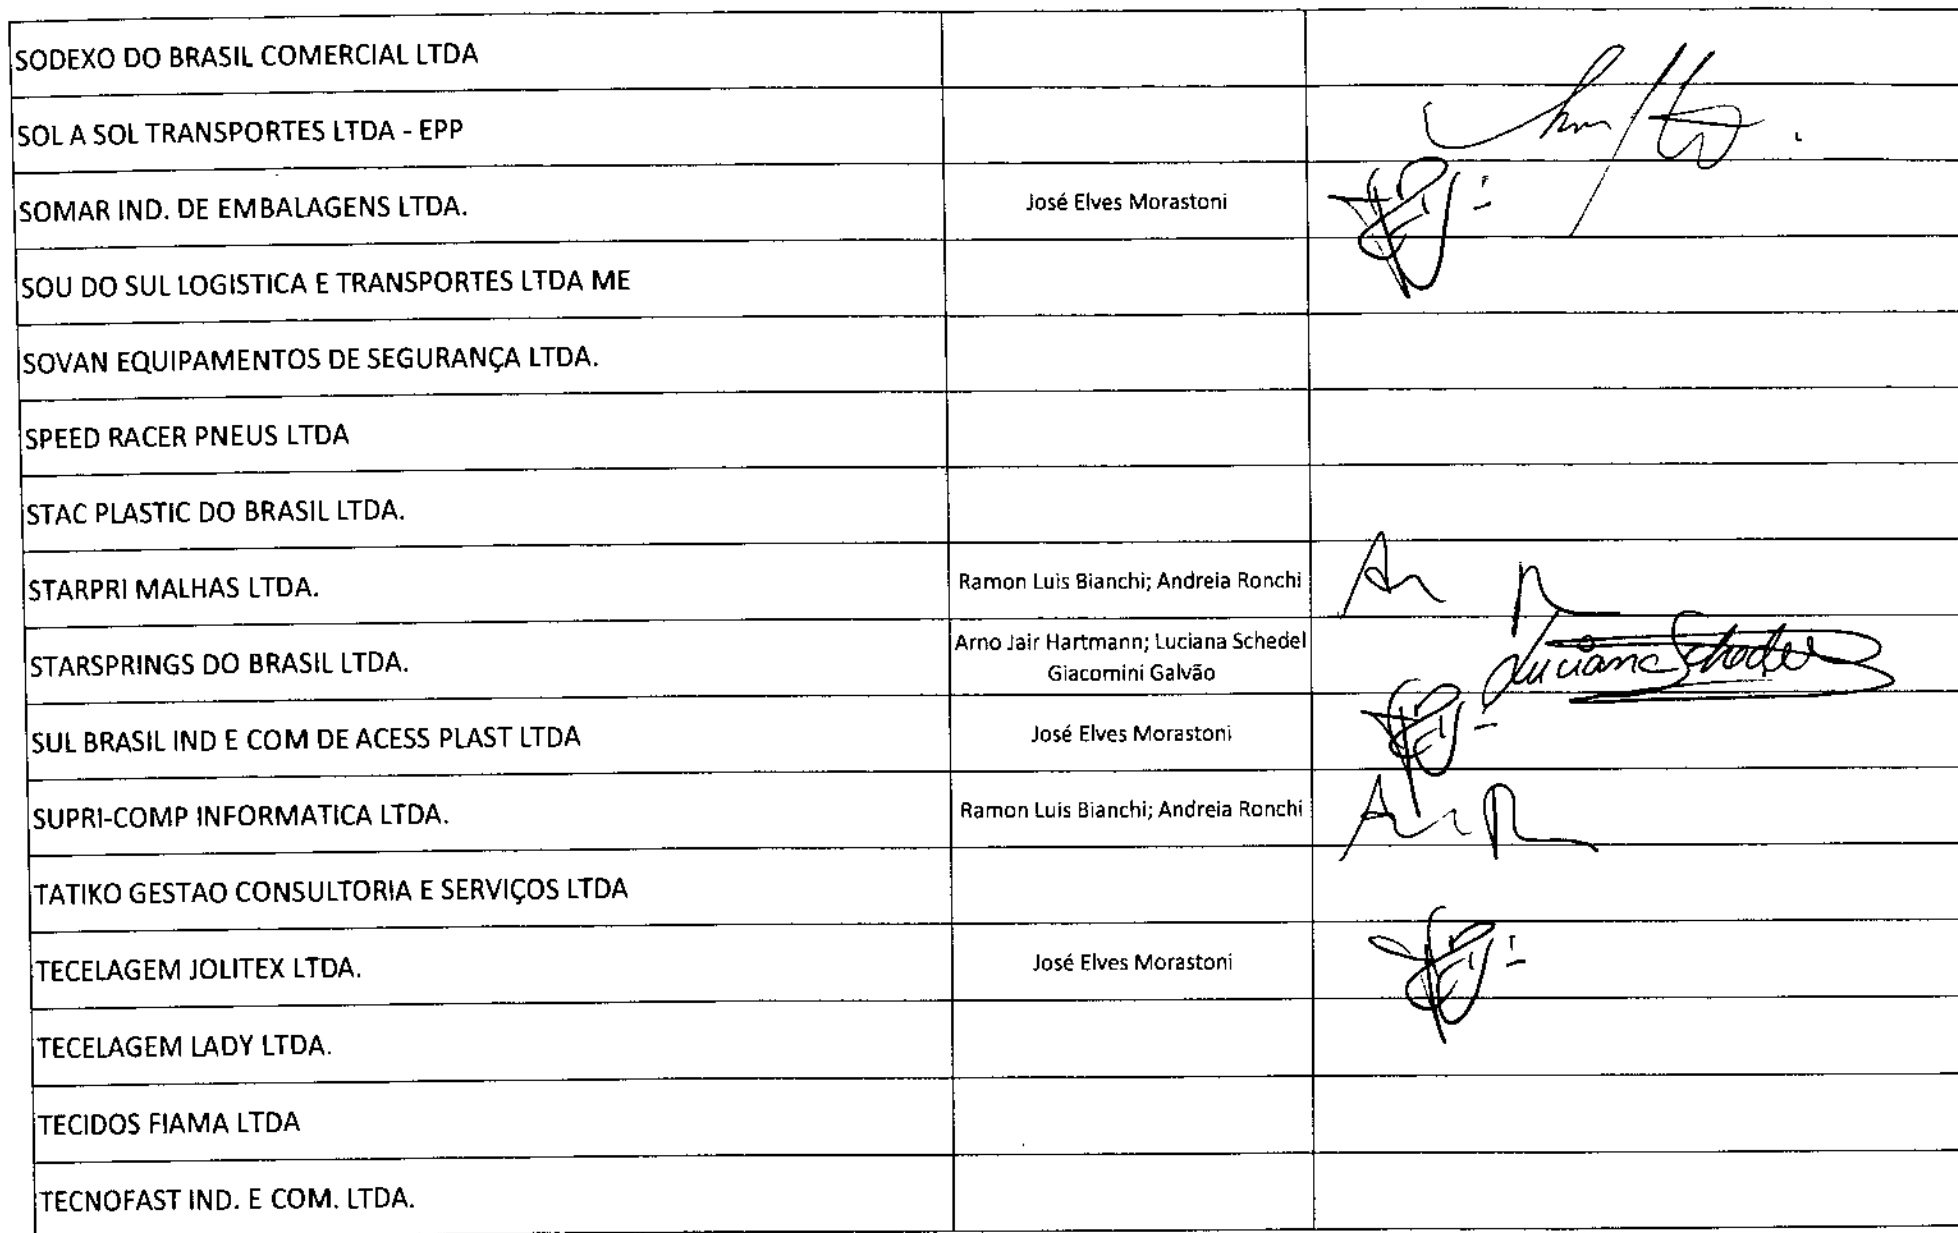 SODEXO DO BRASIL COMERCIAL LTDA
SOL A SOL TRANSPORTES LTDA - EPP
SOMAR IND. DE EMBALAGENS LTDA. José Elves Morastoni
SOU DO SUL LOGISTICA E TRANSPORTES LTDA ME
SOVAN EQUIPAMENTOS DE SEGURANÇA LTDA.
SPEED RACER PNEUS LTDA
STAC PLASTIC DO BRASIL LTDA.
STARPRI MALHAS LTDA. Ramon Luis Bianchi; Andreia Ronchi
STARSPRINGS DO BRASIL LTDA. Arno Jair Hartmann; Luciana Schedel
Giacomini Galvão
Luciana
SUL BRASIL IND E COM DE ACESS PLAST LTDA José Elves Morastoni
SUPRI-COMP INFORMATICA LTDA. Ramon Luis Bianchi; Andreia Ronchi
TATIKO GESTAO CONSULTORIA E SERVIÇOS LTDA
TECELAGEM JOLITEX LTDA. José Elves Morastoni
TECELAGEM LADY LTDA.
TECIDOS FIAMA LTDA
TECNOFAST IND. E COM. LTDA.